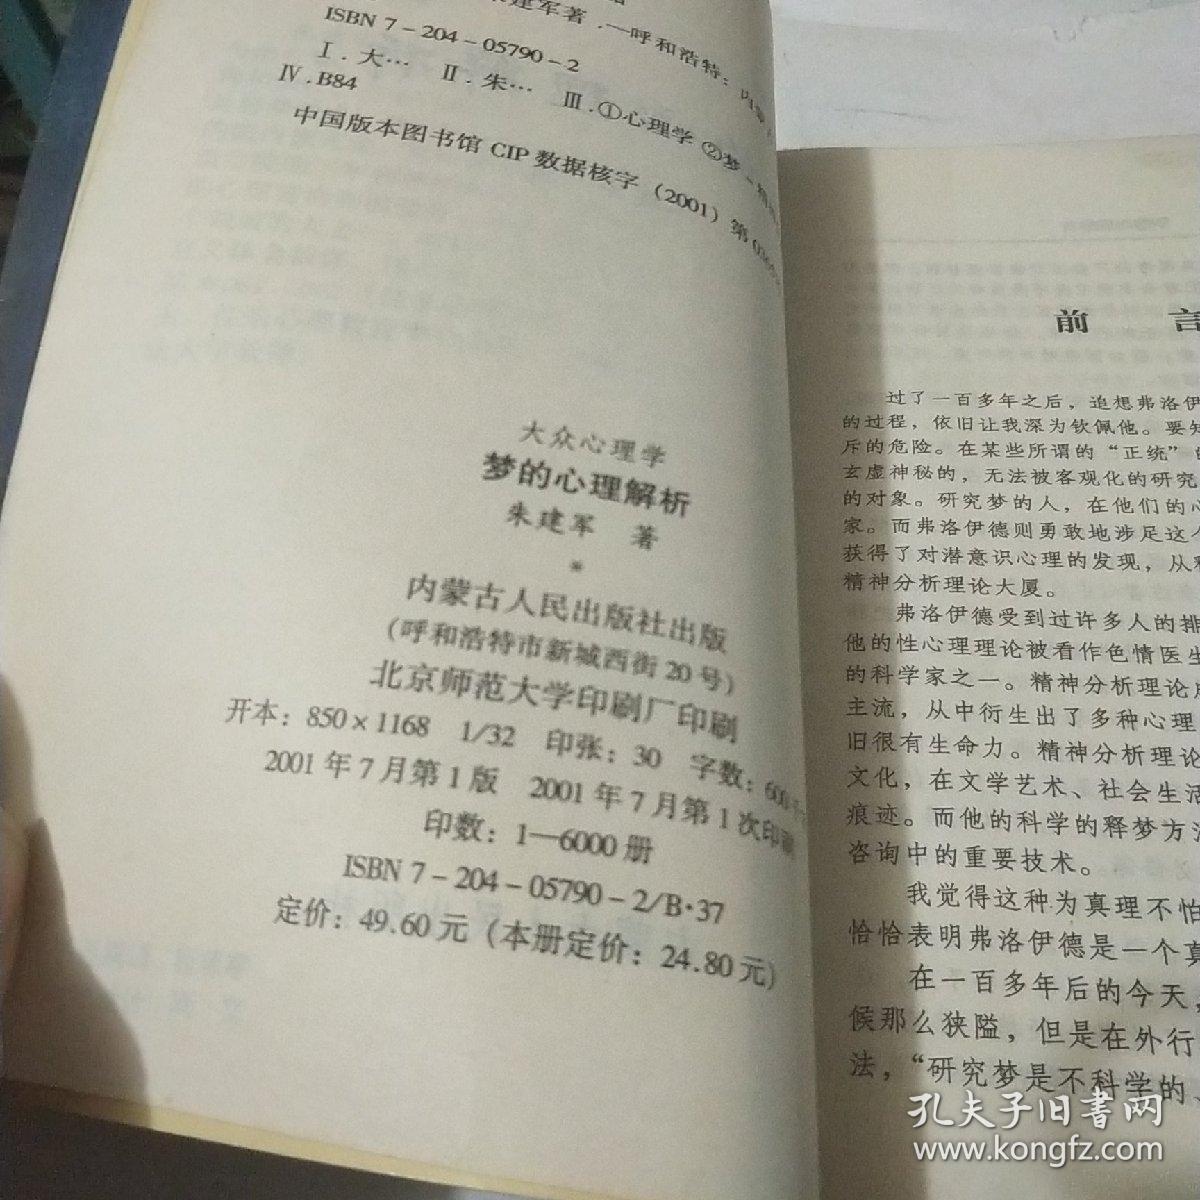 建军著．—呼和浩特：内蒙
ISBN 7-204-05790-2
Ⅰ.大… Ⅱ.朱… Ⅲ.①心理学 ②梦-精
Ⅳ.B84
中国版本图书馆 CIP 数据核字（2001）第
大众心理学
梦的心理解析
朱建军 著
*
内蒙古人民出版社出版
（呼和浩特市新城西街20号）
北京师范大学印刷厂印刷
开本：850×1168 1/32 印张：30 字数：600
2001年7月第1版 2001年7月第1次印刷
印数：1—6000册
ISBN 7-204-05790-2/B·37
定价：49.60元（本册定价：24.80元）
前言
过了一百多年之后，追想弗洛伊
的过程，依旧让我深为钦佩他。要知
斥的危险。在某些所谓的“正统”
玄虚神秘的，无法被客观化的研究
的对象。研究梦的人，在他们的心
家。而弗洛伊德则勇敢地涉足这个
获得了对潜意识心理的发现，从
精神分析理论大厦。
弗洛伊德受到过许多人的排
他的性心理理论被看作色情医生
的科学家之一。精神分析理论
主流，从中衍生出了多种心理
旧很有生命力。精神分析理论
文化，在文学艺术、社会生活
痕迹。而他的科学的释梦方法
咨询中的重要技术。
我觉得这种为真理不怕
恰恰表明弗洛伊德是一个真
在一百多年后的今天，
候那么狭隘，但是在外行
法，“研究梦是不科学的、
孔夫子旧书网
www.kongfz.com